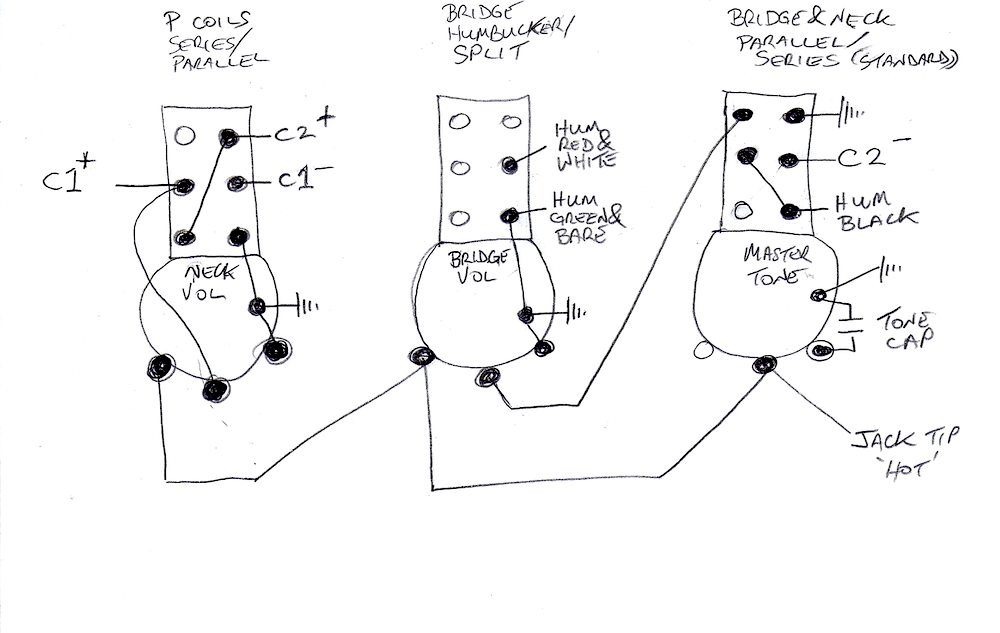 P COILS
SERIES/
PARALLEL
BRIDGE
HUMBUCKER/
SPLIT
BRIDGE & NECK
PARALLEL/
SERIES (STANDARD)
C1+
C2+
C1-
NECK
VOL
HUM
RED &
WHITE
HUM
GREEN &
BARE
BRIDGE
VOL
C2-
HUM
BLACK
MASTER
TONE
TONE
CAP
JACK TIP
'HOT'